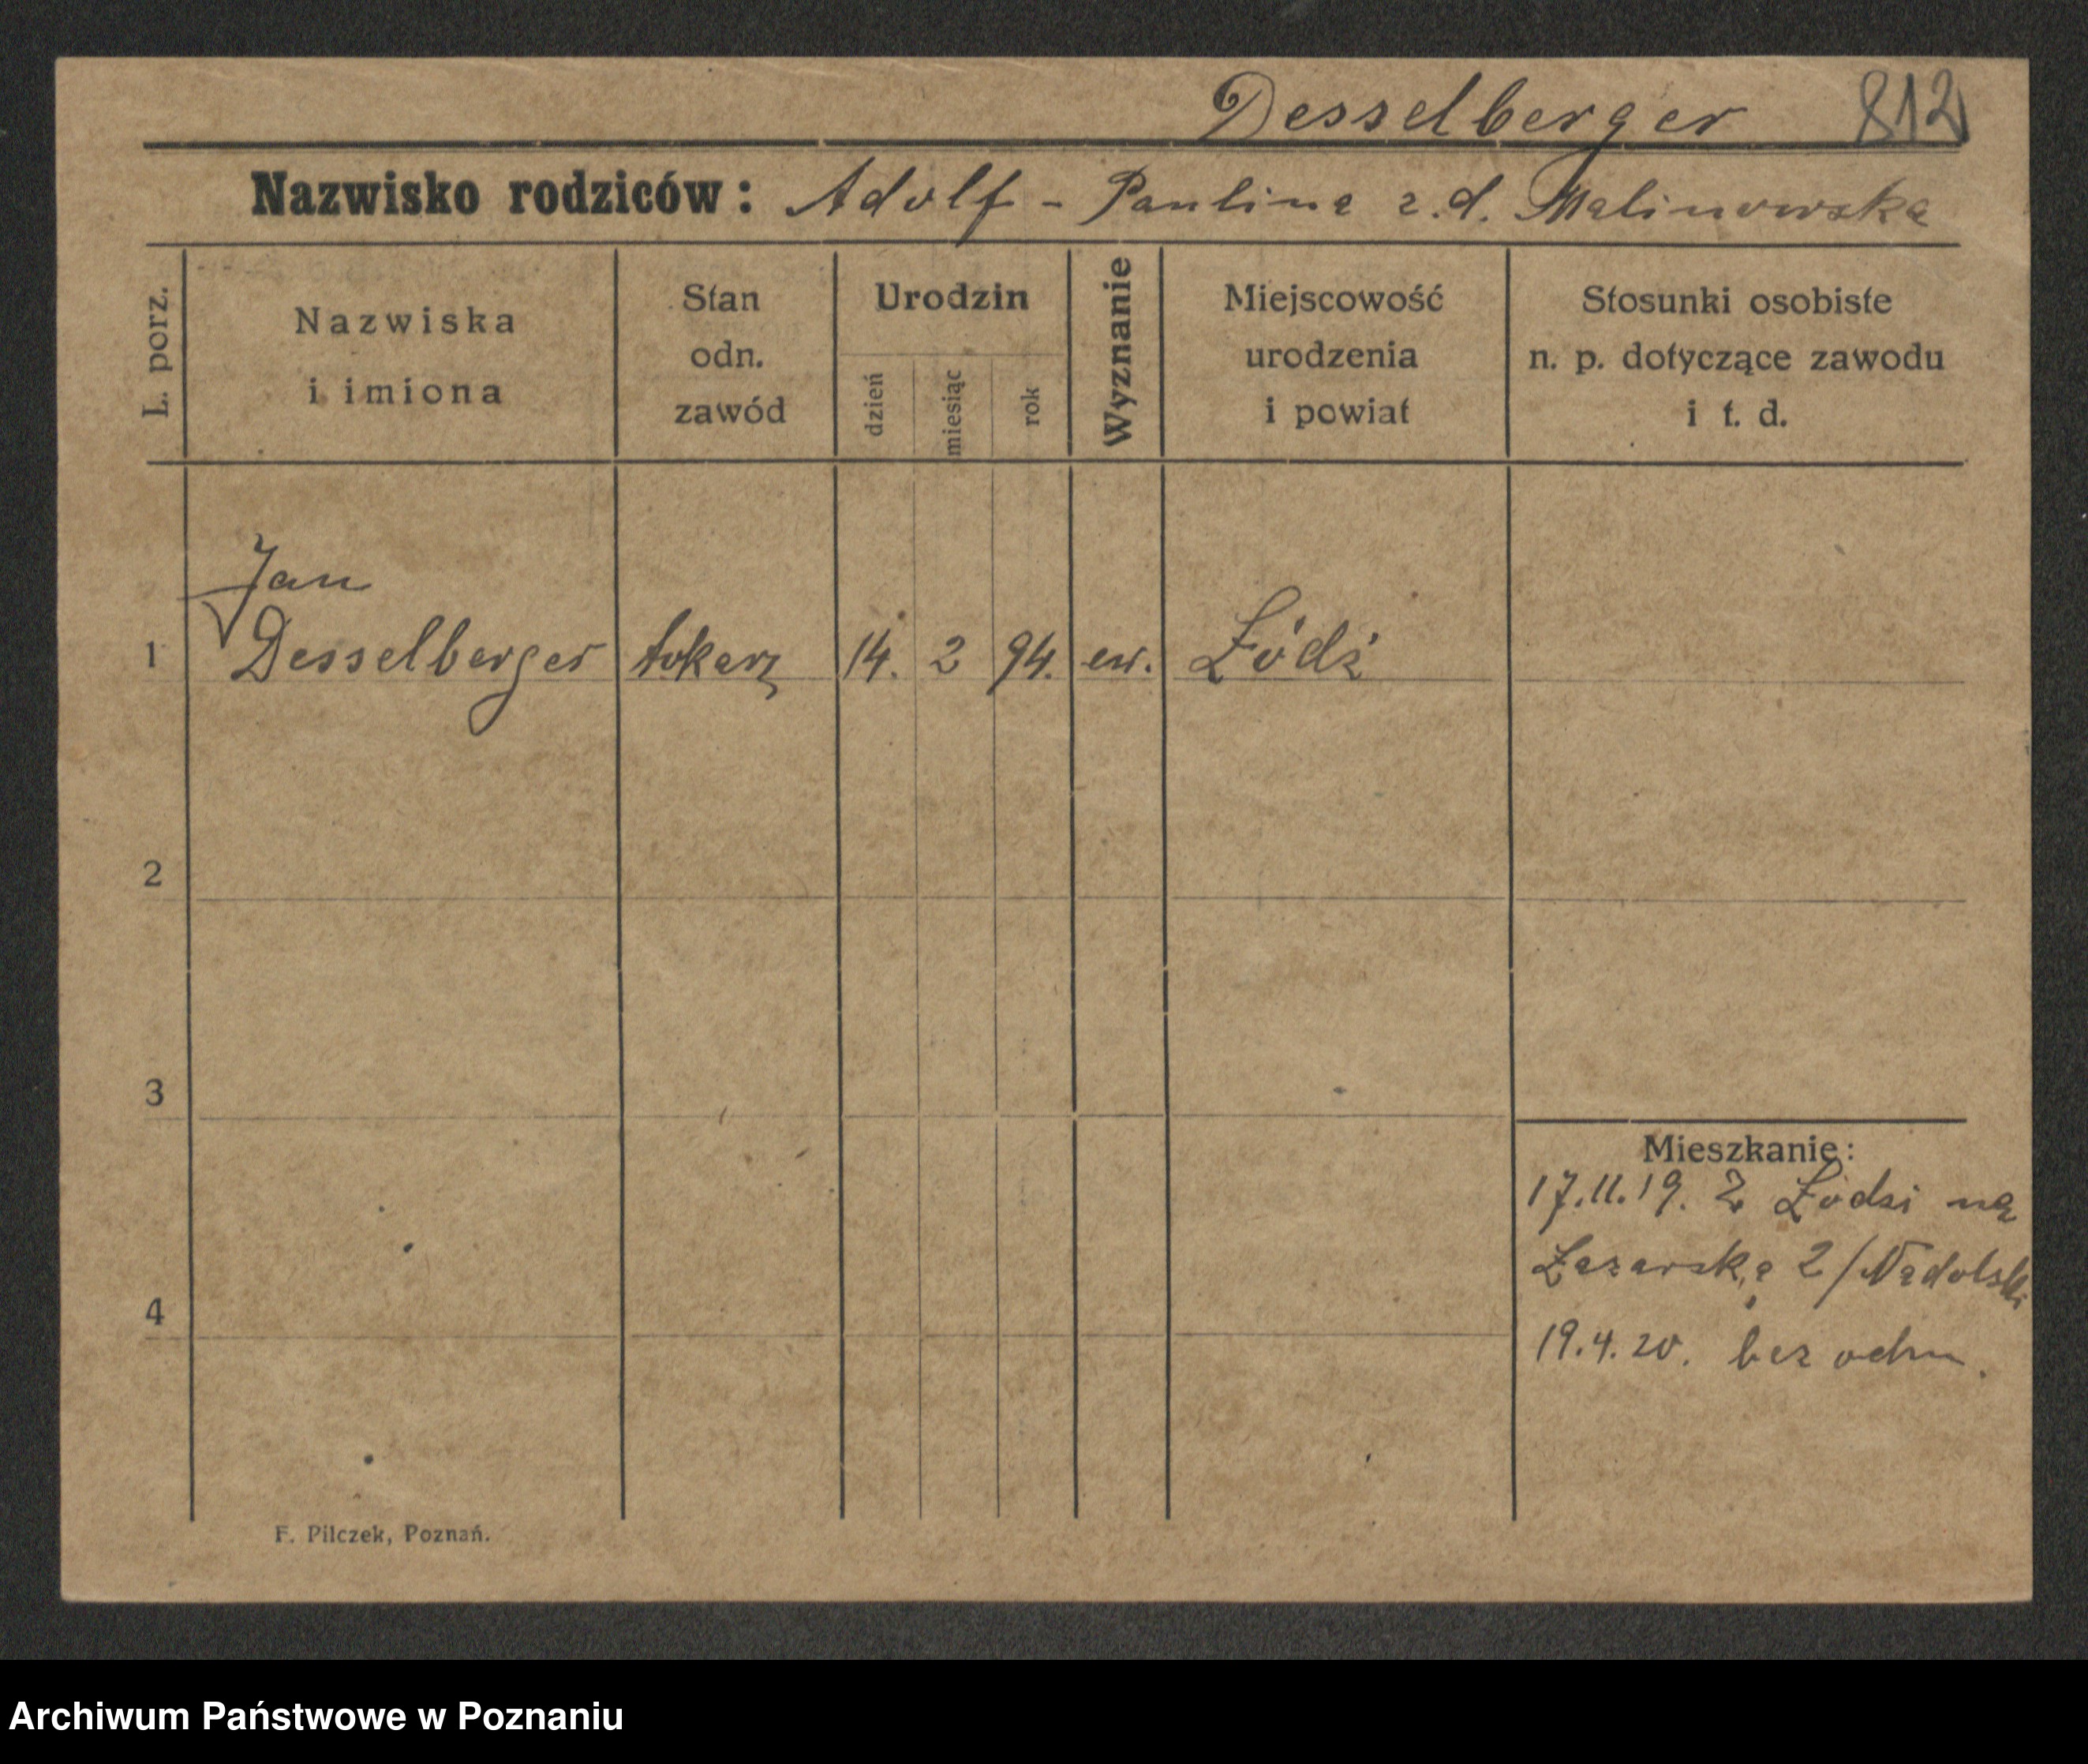 Desselberger 812
Nazwisko rodziców: Adolf - Paulina z.d. Malinowska
L. porz.
Nazwiska
i imiona
Stan
odn.
zawód
Urodzin
dzień
miesiąc
rok
Wyznanie
Miejscowość
urodzenia
i powiat
Stosunki osobiste
n. p. dotyczące zawodu
i t. d.
Jan
1 Desselberger tokarz 14. 2 94. ew. Łódź
2
3
4
Mieszkanie:
17.11.19. Z Łodzi na
Łazarską 2/Nadolski
19.4.20. bez odm.
F. Pilczek, Poznań.
Archiwum Państwowe w Poznaniu